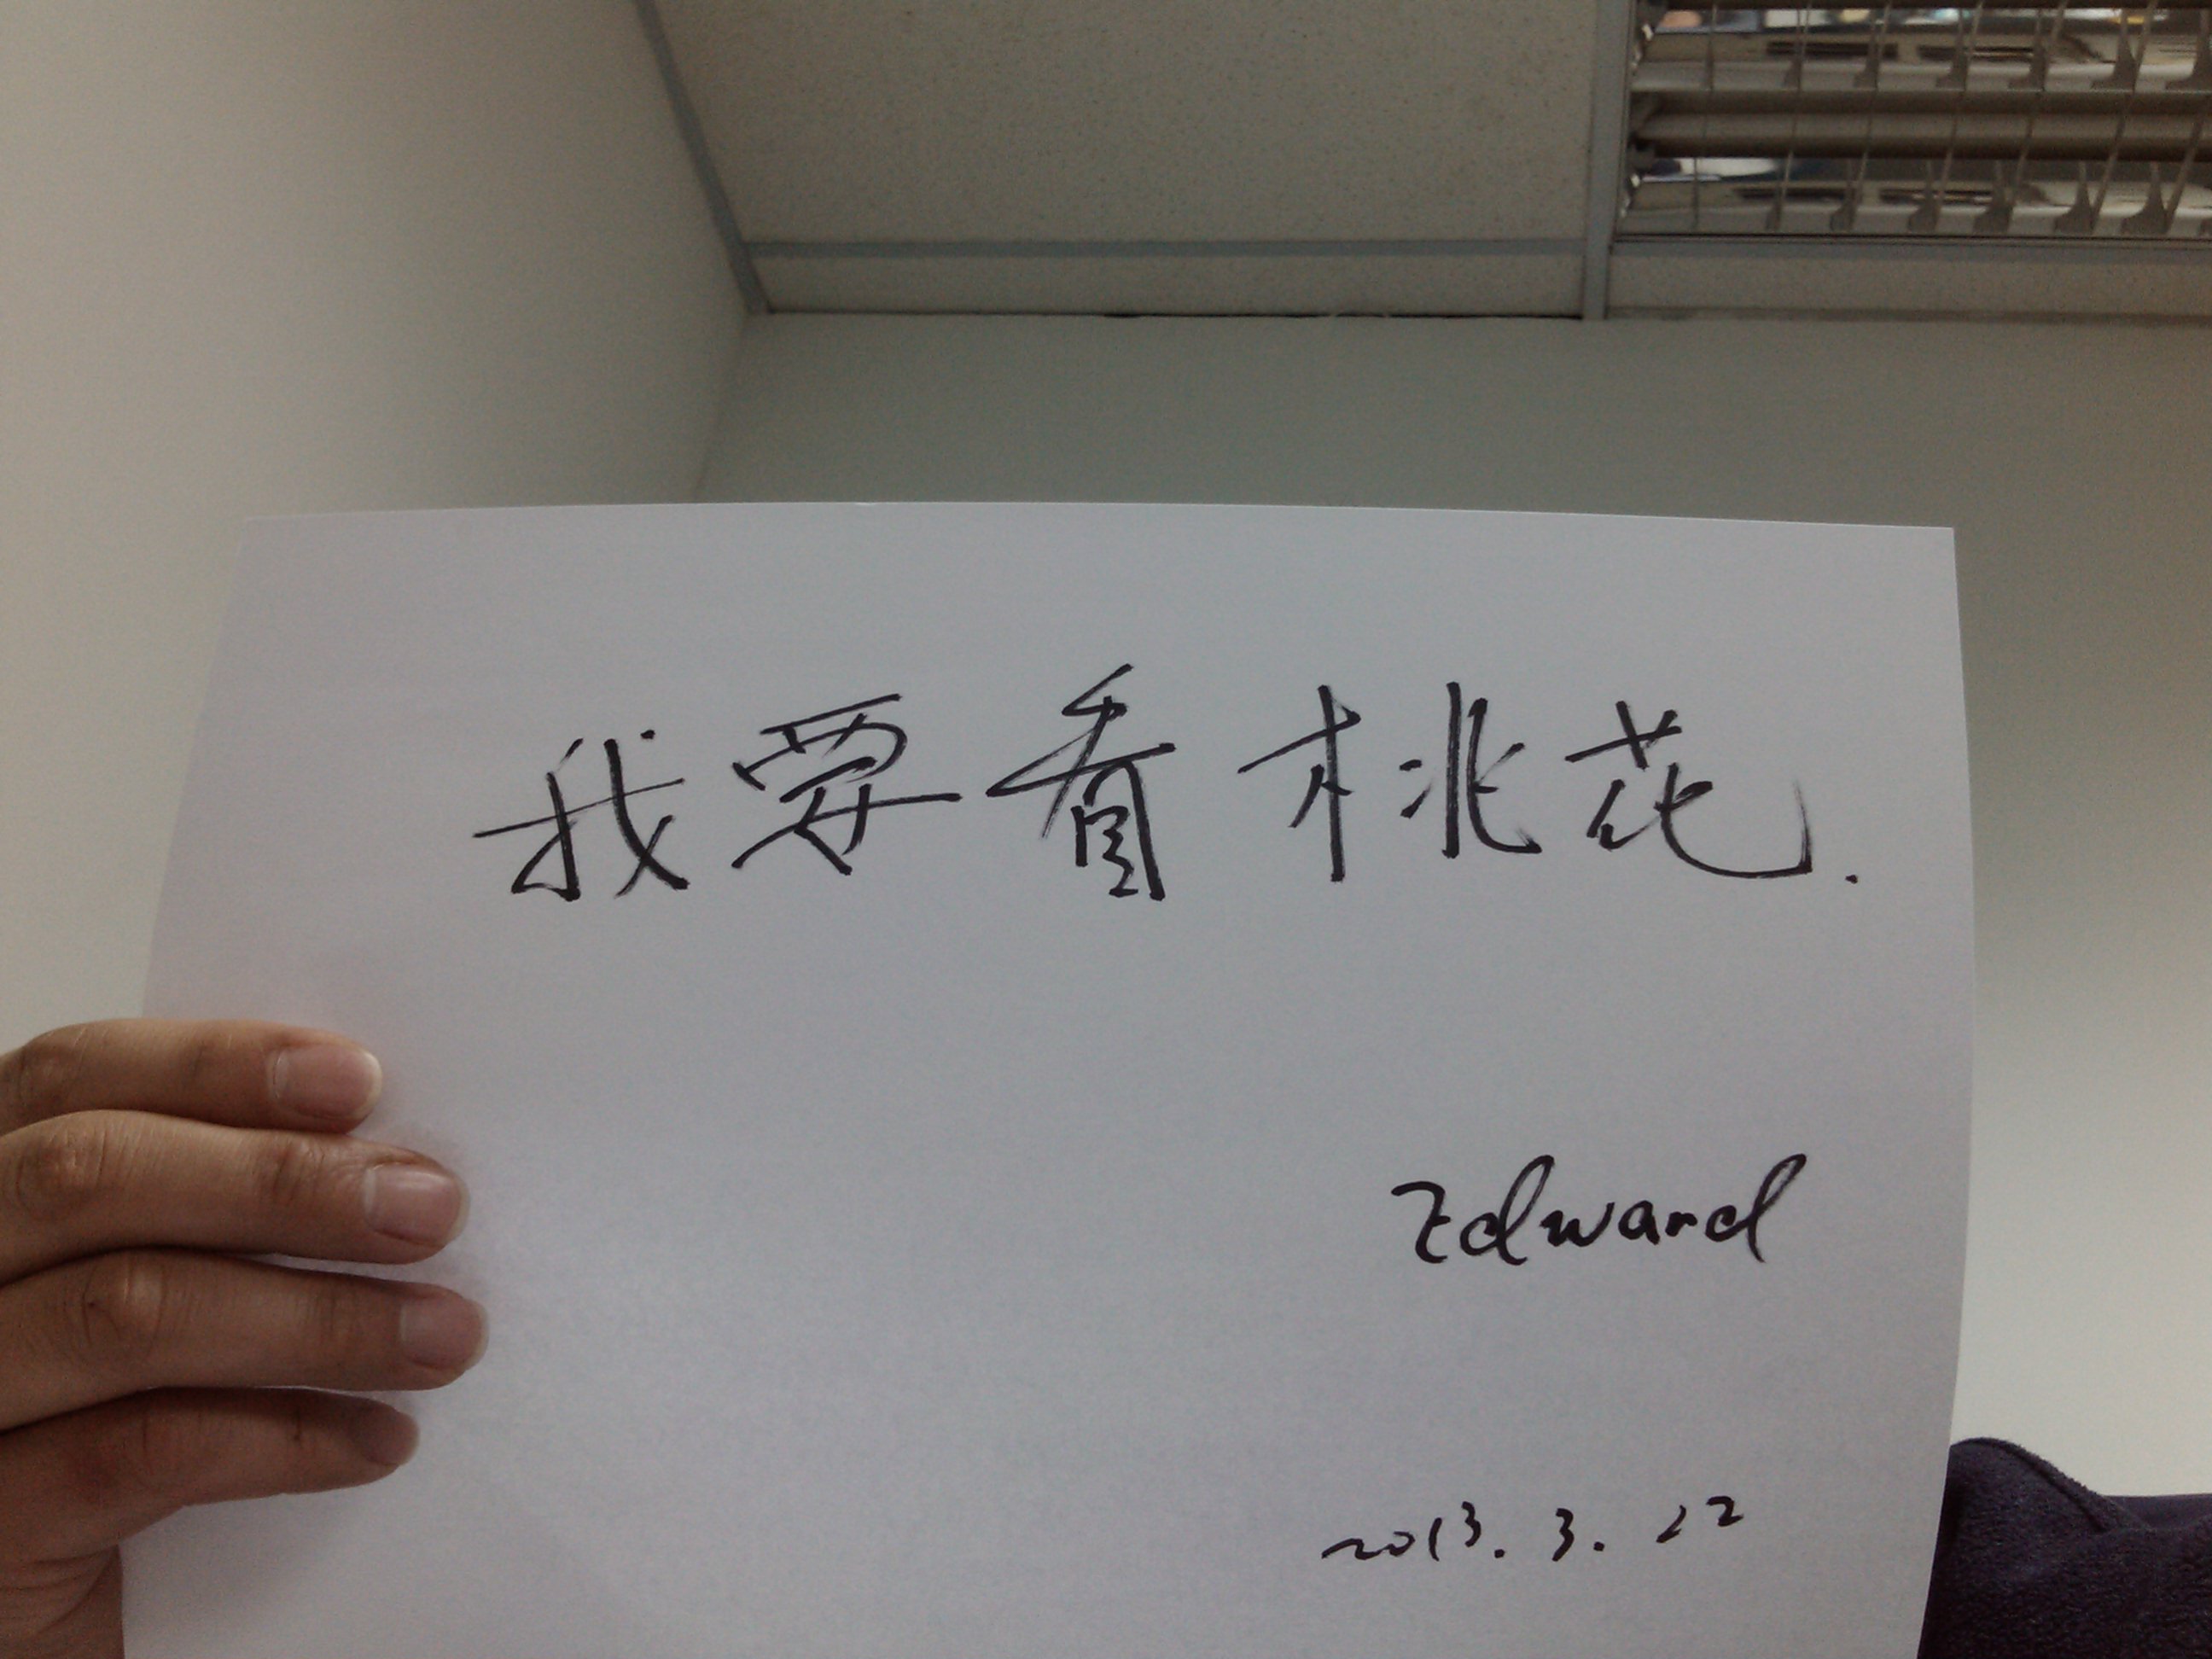 我要看桃花.
Edward
2013.3.22